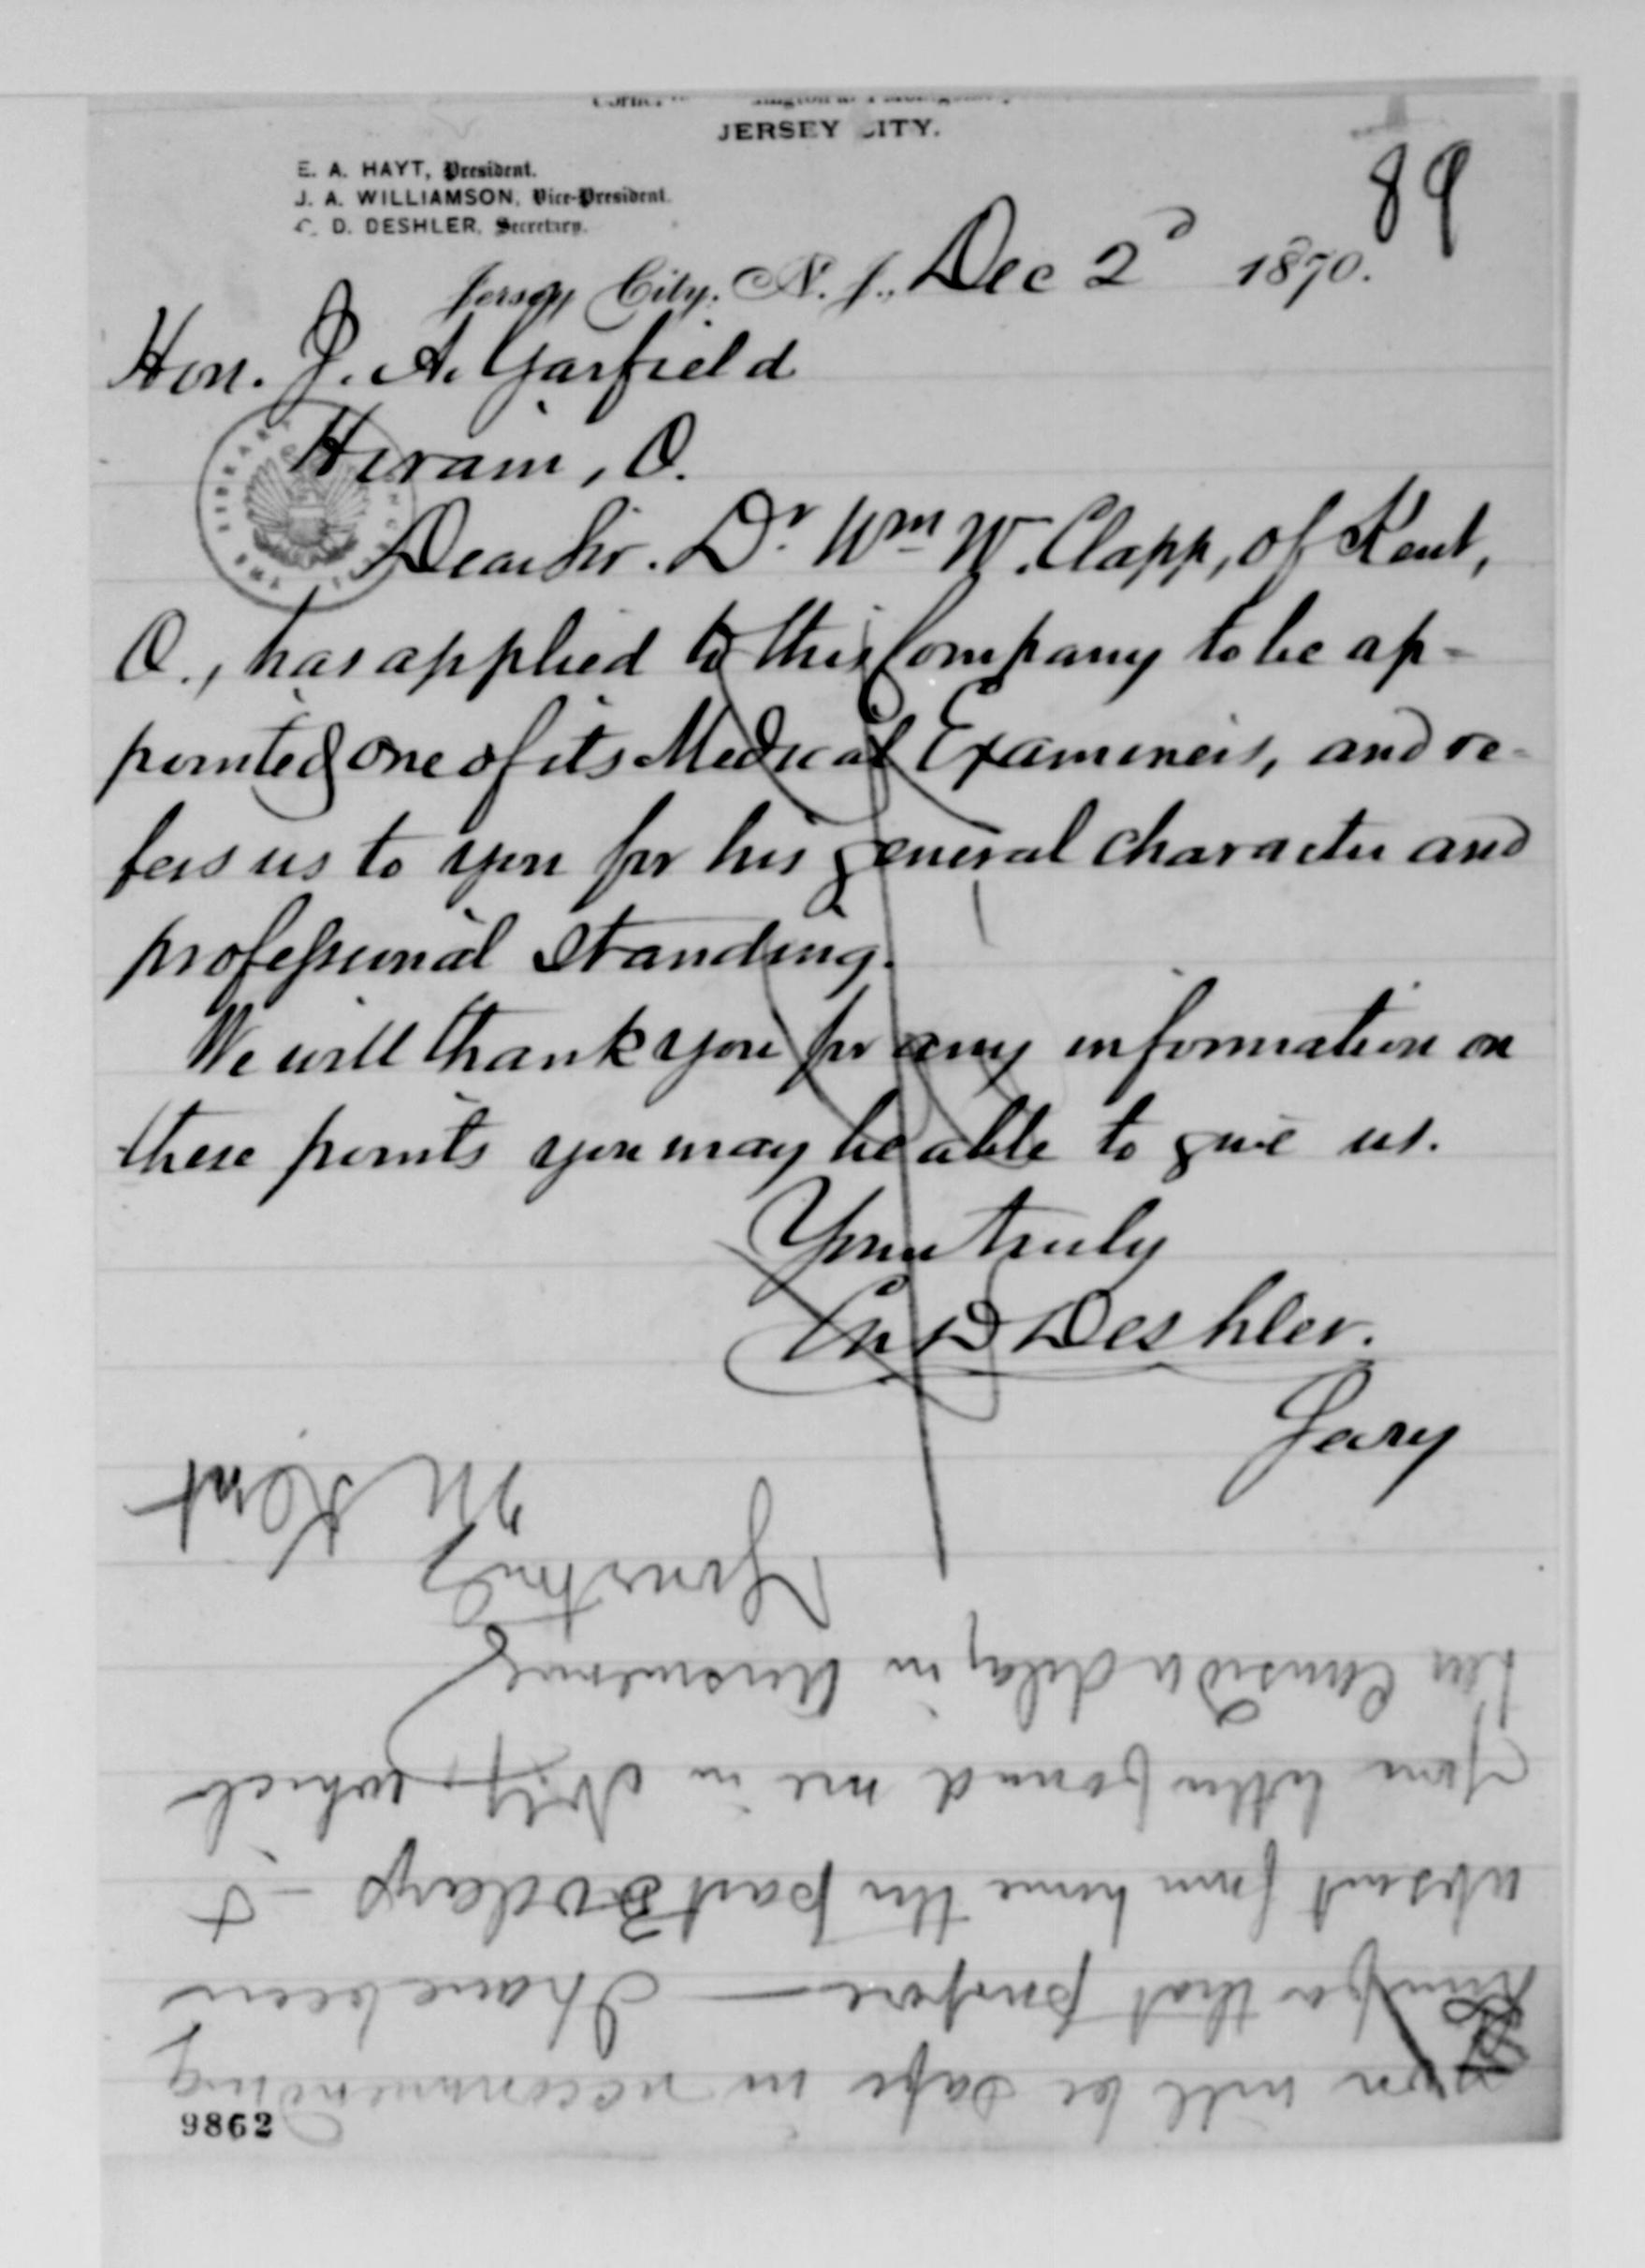 JERSEY CITY.
E. A. HAYT, President.
J. A. WILLIAMSON, Vice-President.
C. D. DESHLER, Secretary.
89
Jersey City, N. J., Dec 2d 1870.
Hon. J. A. Garfield
Hiram, O.
Dear Sir. Dr. Wm W. Clapp, of Kent,
O., has applied to this Company to be ap-
pointed one of its Medical Examiners, and re-
fers us to you for his general character and
professional standing.
We will thank you for any information on
these points you may be able to give us.
Yours truly
Ch D Deshler.
Secy
you will be safe in recommending
him for that purpose — I have been
absent from home the past 20 days - &
your letter found me in N.Y., which
delay in answering
Yours truly
M Kent
9862